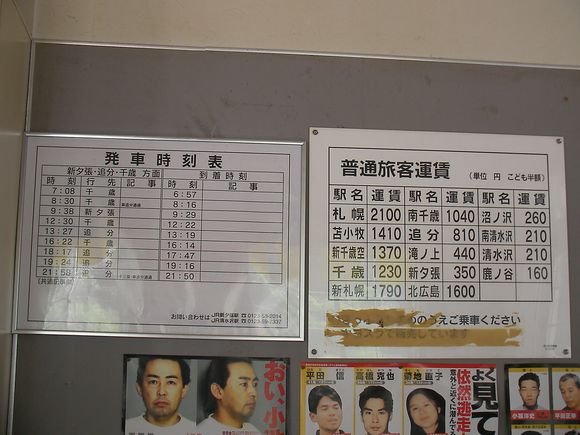 発車時刻表
新夕張・追分・千歳 方面
到着時刻
時刻 行先 記事 時刻 記事
7:08 千歳 6:57
8:30 千歳 8:16
9:38 新夕張 9:29
12:30 千歳 12:22
13:27 追分 13:19
16:22 千歳 16:14
18:17 追分 17:47
19:24 追分 19:16
21:58 追分 21:50
お問い合わせは JR新夕張駅
JR清水沢駅
普通旅客運賃 (単位 円 こども半額)
駅名 運賃 駅名 運賃 駅名 運賃
札幌 2100 南千歳 1040 沼ノ沢 260
苫小牧 1410 追分 810 南清水沢 210
新千歳空 1370 滝ノ上 440 清水沢 210
千歳 1230 新夕張 350 鹿ノ谷 160
新札幌 1790 北広島 1600
のうえご乗車ください
おい、小
平田 信
高橋克也
菊地直子
よく見て
依然逃走
意外と近くに潜んで
小原洋史